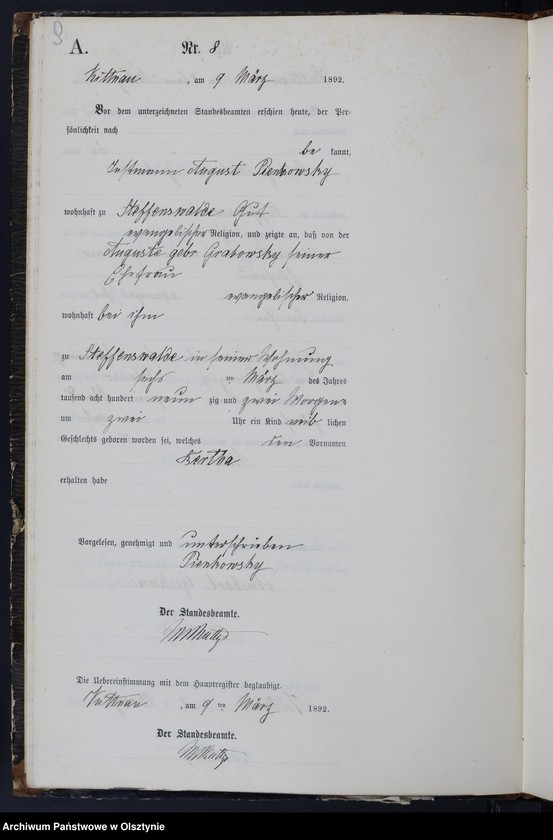 A. Nr. 8
Kittnau, am 9 März 1892.
Vor dem unterzeichneten Standesbeamten erschien heute, der Per-
sönlichkeit nach
be kannt,
Instmann August Pienkowsky
wohnhaft zu Steffenswalde Gut
evangelischer Religion, und zeigte an, daß von der
Auguste geb. Grabowsky seiner
Ehefrau
evangelischer Religion,
wohnhaft bei ihm
zu Steffenswalde in seiner Wohnung
am sechs ten März des Jahres
tausend acht hundert neun zig und zwei Morgens
um zwei Uhr ein Kind weib lichen
Geschlechts geboren worden sei, welches den Vornamen
Bertha
erhalten habe
Vorgelesen, genehmigt und unterschrieben
Pienkowsky
Der Standesbeamte.
Die Uebereinstimmung mit dem Hauptregister beglaubigt.
Kittnau, am 9 ten März 1892.
Der Standesbeamte.
Archiwum Państwowe w Olsztynie